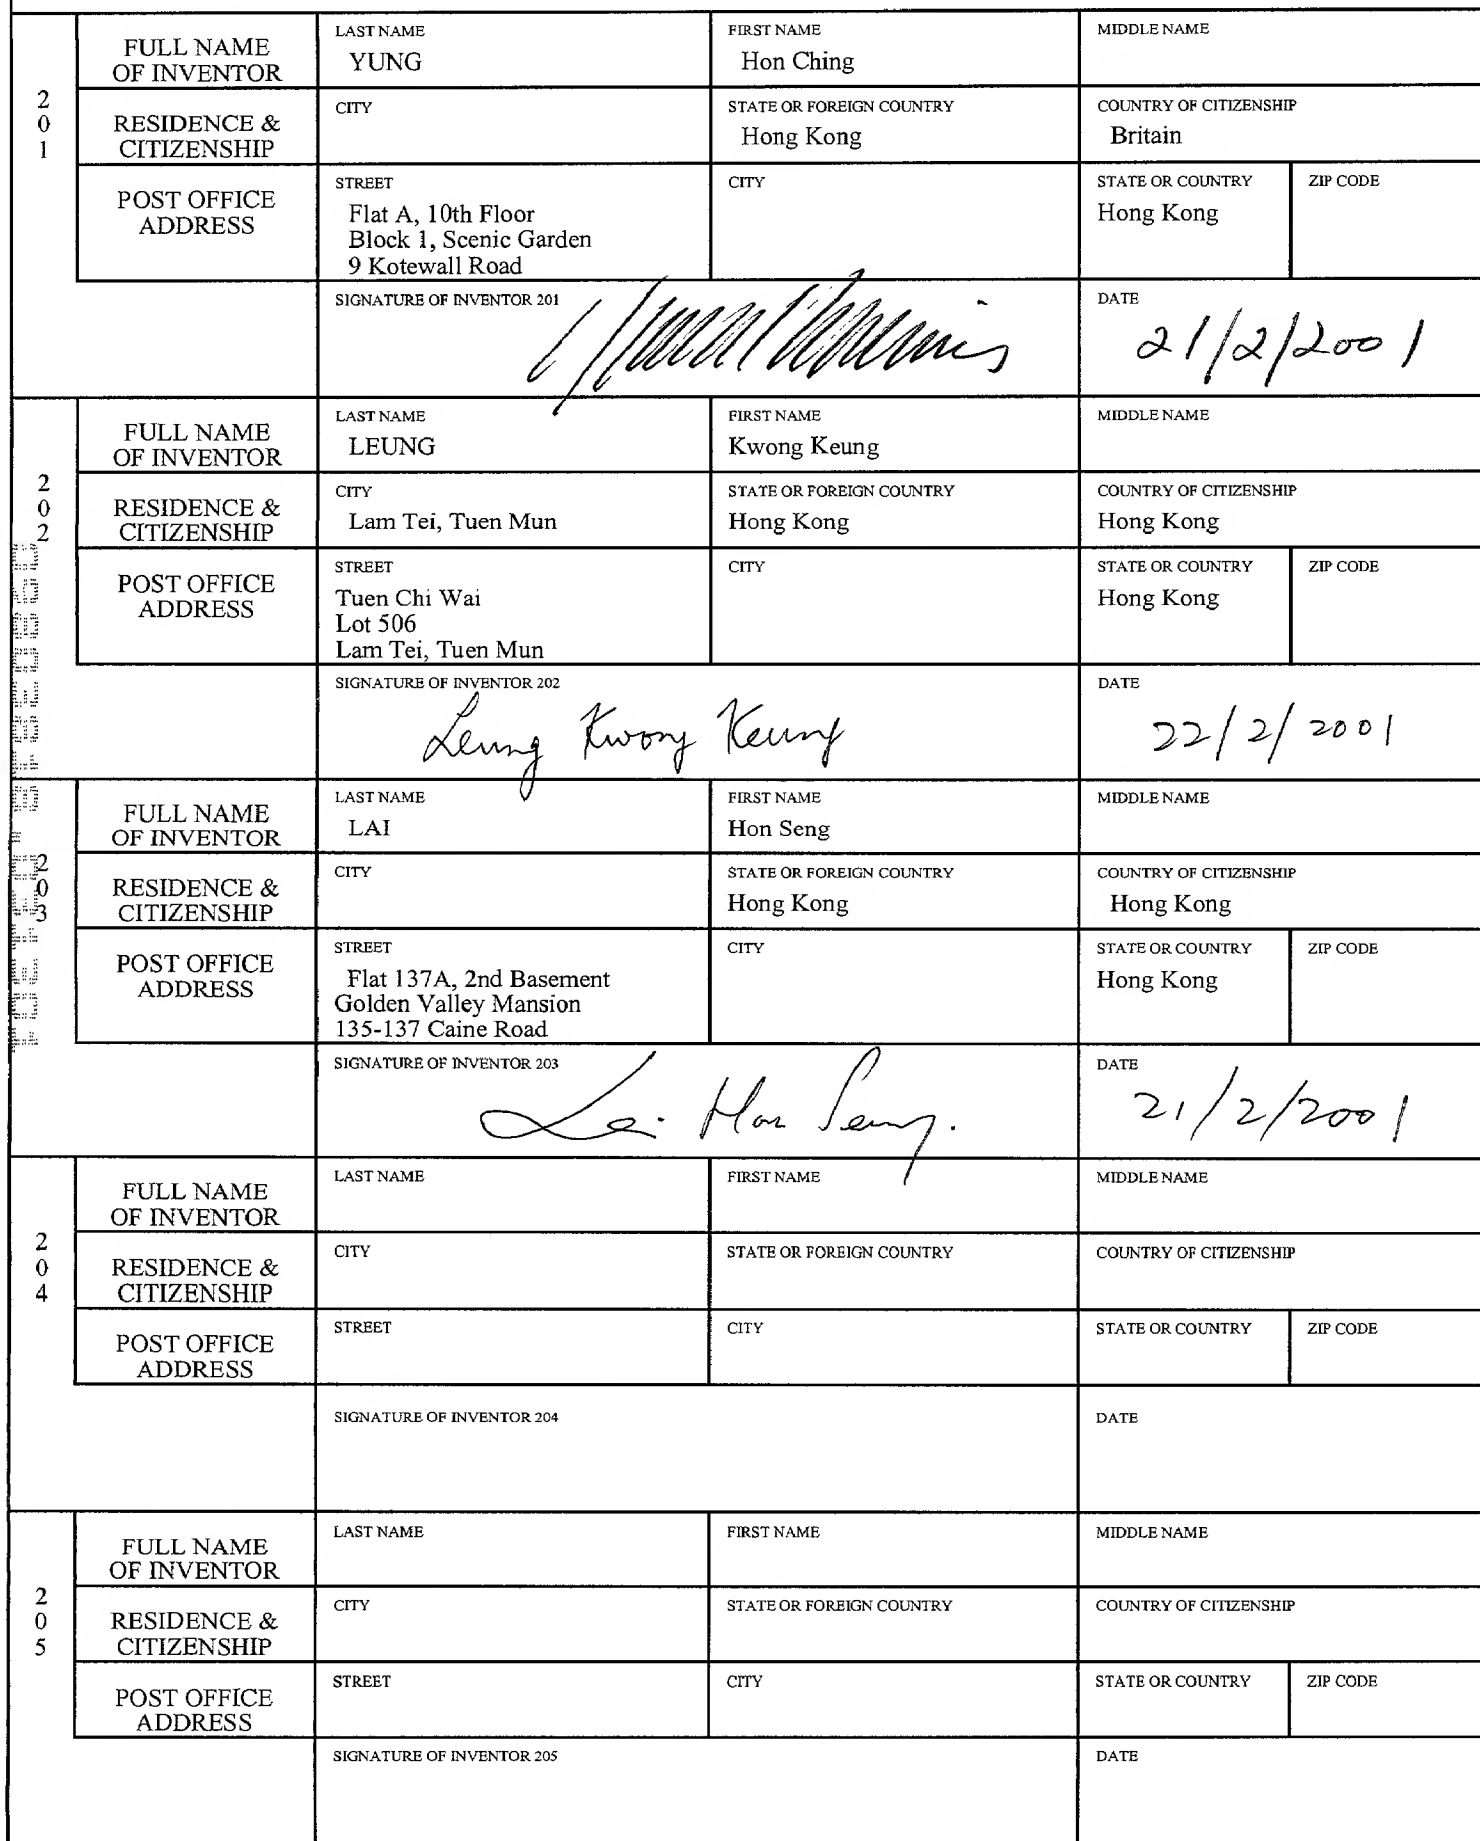 201
FULL NAME OF INVENTOR
LAST NAME
YUNG
FIRST NAME
Hon Ching
MIDDLE NAME
RESIDENCE & CITIZENSHIP
CITY
STATE OR FOREIGN COUNTRY
Hong Kong
COUNTRY OF CITIZENSHIP
Britain
POST OFFICE ADDRESS
STREET
Flat A, 10th Floor
Block 1, Scenic Garden
9 Kotewall Road
CITY
STATE OR COUNTRY
Hong Kong
ZIP CODE
SIGNATURE OF INVENTOR 201
DATE
21/2/2001
202
FULL NAME OF INVENTOR
LAST NAME
LEUNG
FIRST NAME
Kwong Keung
MIDDLE NAME
RESIDENCE & CITIZENSHIP
CITY
Lam Tei, Tuen Mun
STATE OR FOREIGN COUNTRY
Hong Kong
COUNTRY OF CITIZENSHIP
Hong Kong
POST OFFICE ADDRESS
STREET
Tuen Chi Wai
Lot 506
Lam Tei, Tuen Mun
CITY
STATE OR COUNTRY
Hong Kong
ZIP CODE
SIGNATURE OF INVENTOR 202
Leung Kwong Keung
DATE
22/2/2001
203
FULL NAME OF INVENTOR
LAST NAME
LAI
FIRST NAME
Hon Seng
MIDDLE NAME
RESIDENCE & CITIZENSHIP
CITY
STATE OR FOREIGN COUNTRY
Hong Kong
COUNTRY OF CITIZENSHIP
Hong Kong
POST OFFICE ADDRESS
STREET
Flat 137A, 2nd Basement
Golden Valley Mansion
135-137 Caine Road
CITY
STATE OR COUNTRY
Hong Kong
ZIP CODE
SIGNATURE OF INVENTOR 203
Lai Hon Seng.
DATE
21/2/2001
204
FULL NAME OF INVENTOR
LAST NAME
FIRST NAME
MIDDLE NAME
RESIDENCE & CITIZENSHIP
CITY
STATE OR FOREIGN COUNTRY
COUNTRY OF CITIZENSHIP
POST OFFICE ADDRESS
STREET
CITY
STATE OR COUNTRY
ZIP CODE
SIGNATURE OF INVENTOR 204
DATE
205
FULL NAME OF INVENTOR
LAST NAME
FIRST NAME
MIDDLE NAME
RESIDENCE & CITIZENSHIP
CITY
STATE OR FOREIGN COUNTRY
COUNTRY OF CITIZENSHIP
POST OFFICE ADDRESS
STREET
CITY
STATE OR COUNTRY
ZIP CODE
SIGNATURE OF INVENTOR 205
DATE